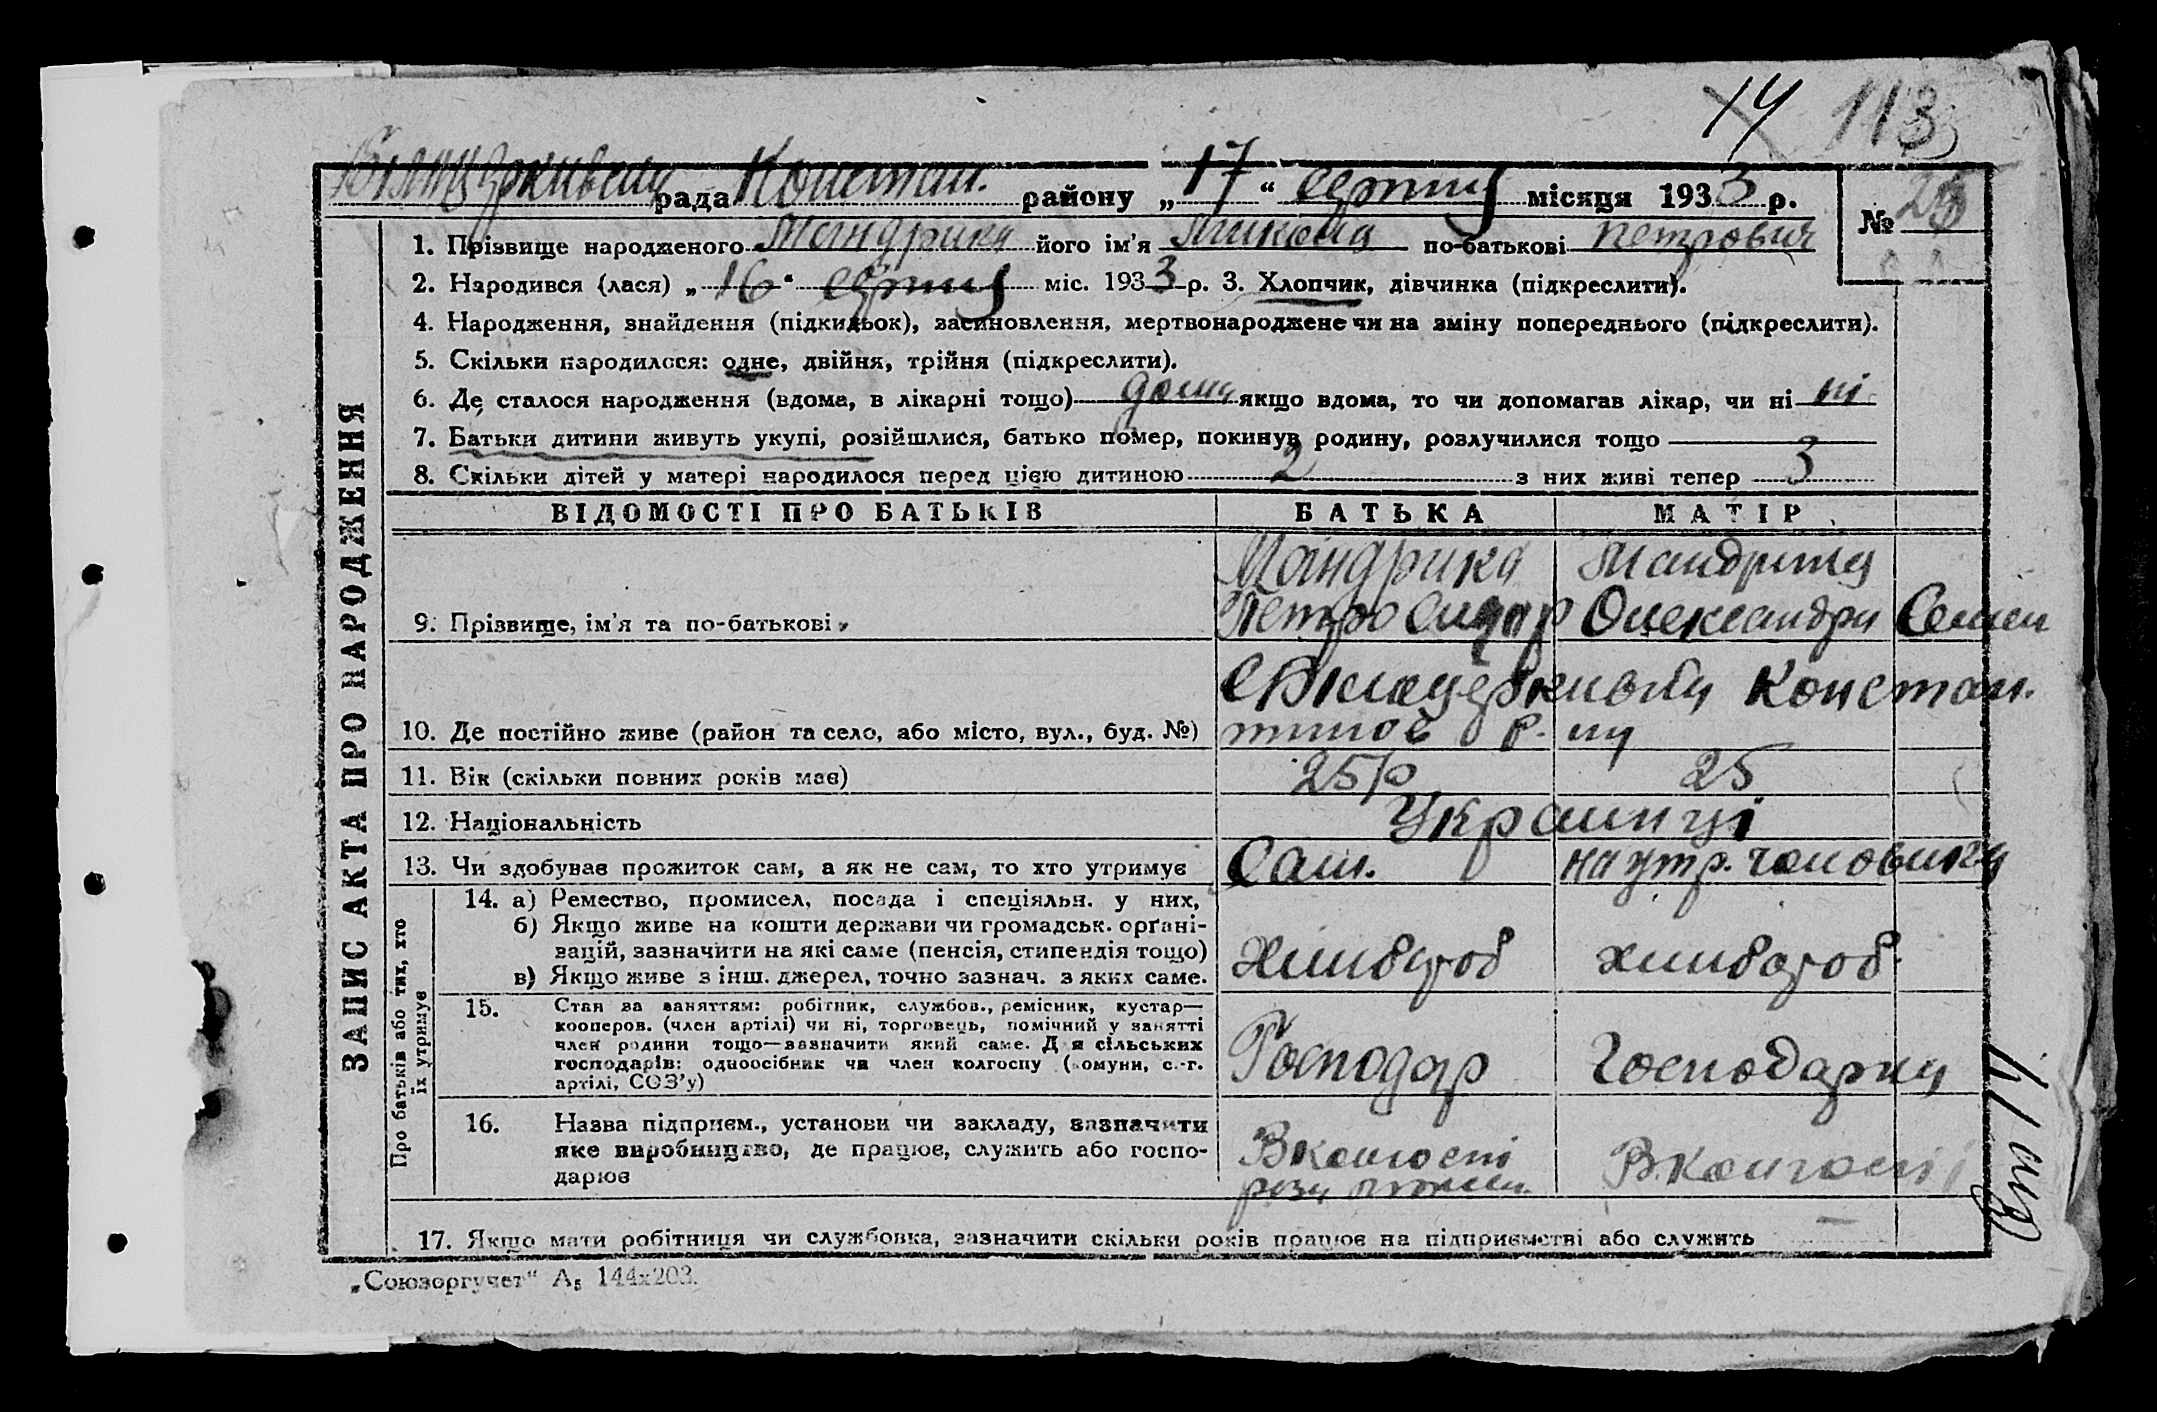 14 113
Білоцерківська рада Констан. району „17“ серпня місяця 1933 р.
№ 25
1. Прізвище народженого Мандрика його ім'я Микола по-батькові Петрович
2. Народився (лася) „16“ серпня міс. 1933 р. 3. Хлопчик, дівчинка (підкреслити).
4. Народження, знайдення (підкидьок), засиновлення, мертвонароджене чи на зміну попереднього (підкреслити).
5. Скільки народилося: одне, двійня, трійня (підкреслити).
6. Де сталося народження (вдома, в лікарні тощо) дома якщо вдома, то чи допомагав лікар, чи ні ні
7. Батьки дитини живуть укупі, розійшлися, батько помер, покинув родину, розлучилися тощо
8. Скільки дітей у матері народилося перед цією дитиною 2 з них живі тепер 3
ЗАПИС АКТА ПРО НАРОДЖЕННЯ
ВІДОМОСТІ ПРО БАТЬКІВ БАТЬКА МАТІР
Мандрика Мандрика
9. Прізвище, ім'я та по-батькові Петро Сидор Олександра Семен
Констан.
10. Де постійно живе (район та село, або місто, вул., буд. №) тинов р-ну
11. Вік (скільки повних років має) 25 р 25
12. Національність Українці
13. Чи здобував прожиток сам, а як не сам, то хто утримує Сам. на утр. чоловіка
Про батьків або тих, хто
їх утримує
14. а) Ремество, промисел, посада і спеціяльн. у них,
б) Якщо живе на кошти держави чи громадськ. орґані-
зацій, зазначити на які саме (пенсія, стипендія тощо) Хлібороб хлібороб.
в) Якщо живе з інш. джерел, точно зазнач. з яких саме.
15. Стан за заняттям: робітник, службов., ремісник, кустар—
кооперов. (член артілі) чи ні, торговець, помічний у занятті
член родини тощо—зазначити який саме. Для сільських
господарів: одноосібник чи член колгоспу (комуни, с.-г.
артілі, СОЗ'у) Господар Господарка
16. Назва підприєм., установи чи закладу, зазначити
яке виробництво, де працює, служить або госпо-
дарює В колгоспі В колгоспі
17. Якщо мати робітниця чи службовка, зазначити скільки років працює на підприємстві або служить
„Союзоргучет“ А₅ 144х203.